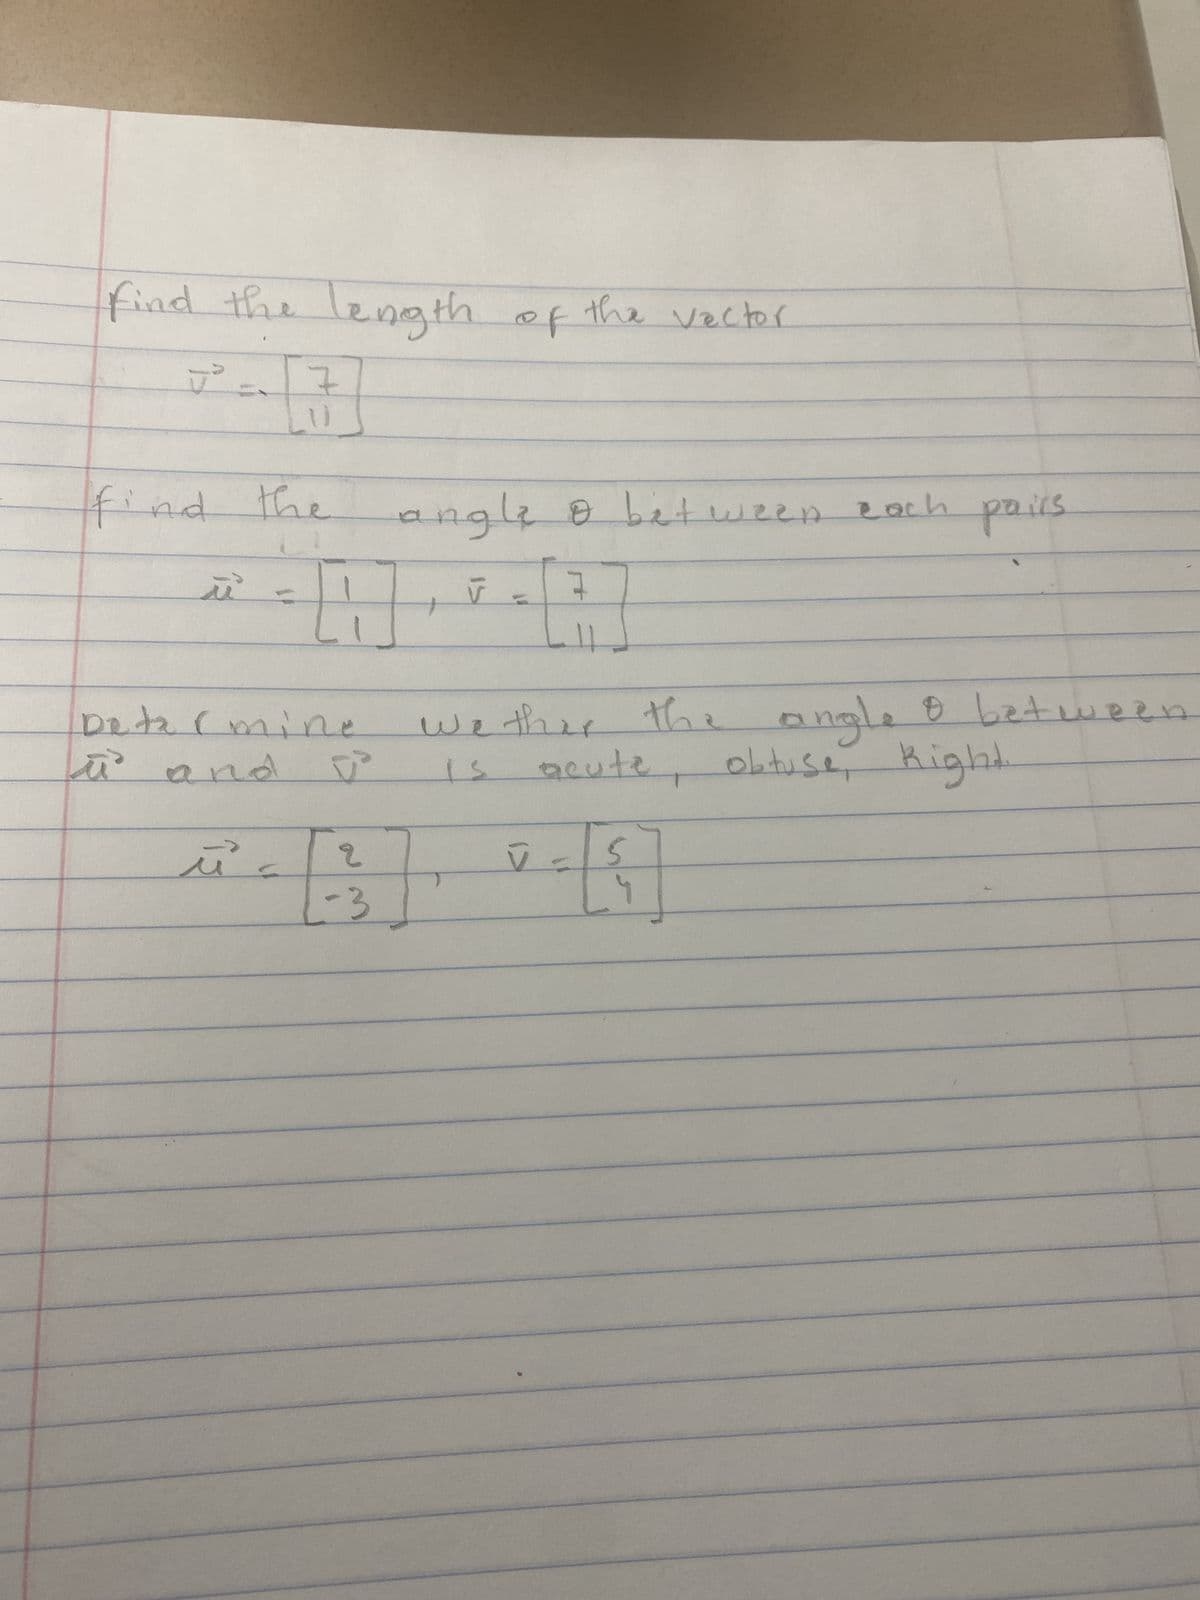 find the length of the vector
v⃗ = [7
11]
find the angle θ between each pairs
u⃗ = [1
1], v̄ = [7
11]
Determine wether the angle θ between
u⃗ and v⃗ is acute, obtuse, Right.
u⃗ = [2
-3], v̄ = [5
4]